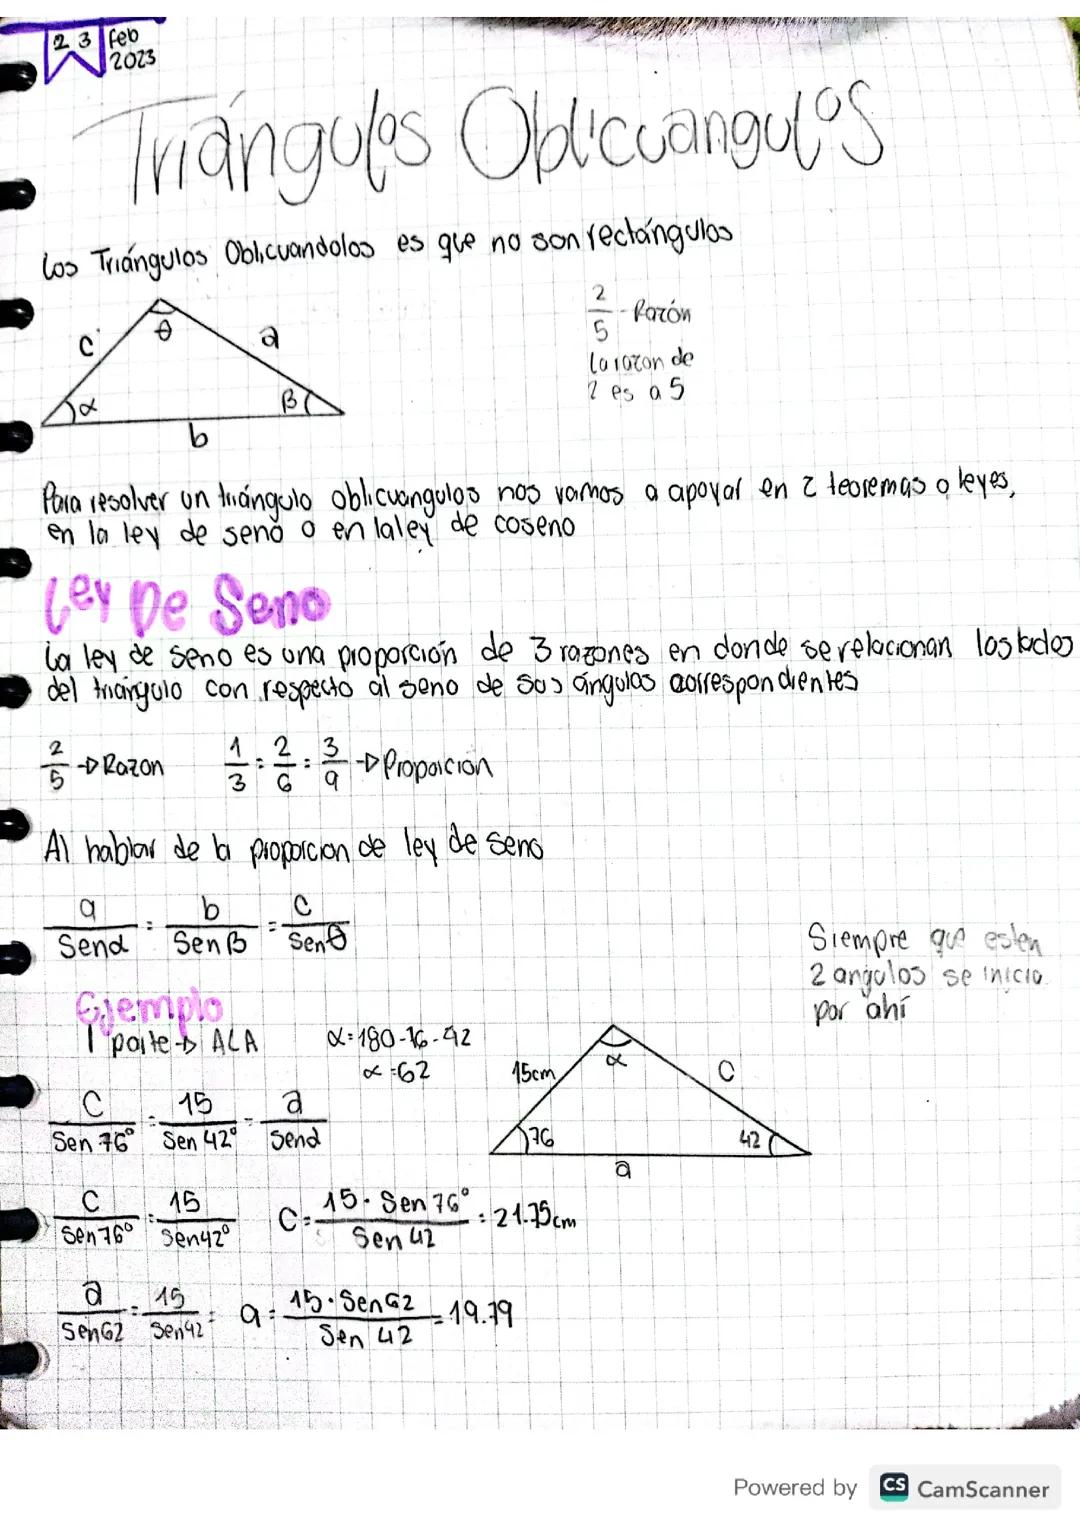 23 feb
2023
Triángulos Oblicuangulos
Los Triángulos Oblicuandolos es que no son rectángulos
2/5 - Razón
La razon de
2 es a 5
c θ a
α β
b
Para resolver un triángulo oblicuangulos nos vamos a apoyar en 2 teoremas o leyes,
en la ley de seno o en la ley de coseno
Ley De Seno
La ley de seno es una proporción de 3 razones en donde se relacionan los lados
del triángulo con respecto al seno de sus ángulos correspondientes
2/5 → Razon 1/3 = 2/6 = 3/9 → Proporcion
Al hablar de la proporcion de ley de seno
a/Senα = b/Sen β = c/Senθ
Siempre que esten
2 angulos se inicia
por ahí
Ejemplo
1 parte → ALA
α = 180-76-42
α = 62
15cm α C
76 42
a
C/Sen 76° = 15/Sen 42° = a/Senα
C/Sen 76° = 15/Sen 42° C = 15 · Sen 76°/Sen 42 = 21.75cm
a/Sen62 = 15/Sen42 = a = 15 · Sen62/Sen 42 = 19.79
Powered by CS CamScanner